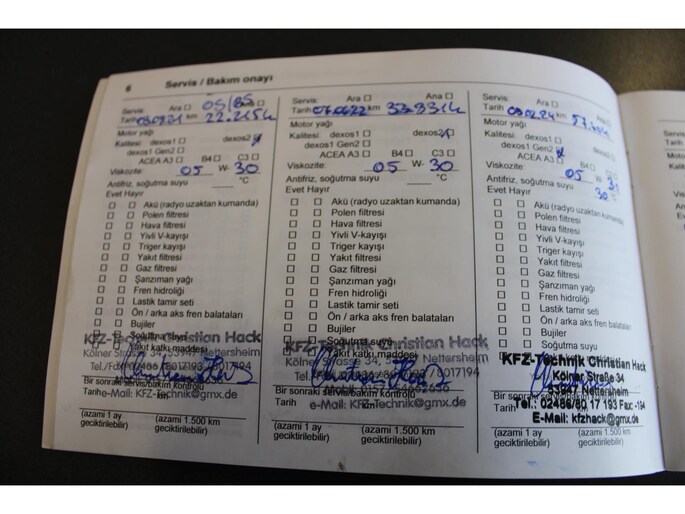 6 Servis / Bakım onayı
Servis: Ara ☐ 05/85 Ana ☐
Tarih km 22.215k
Motor yağı
Kalitesi: dexos1 ☐ dexos2
dexos1 Gen2 ☐
ACEA A3 ☐ B4 ☐ C3 ☐
Viskozite: 05 W- 30
Antifriz, soğutma suyu ____ °C
Evet Hayır
☐ ☐ Akü (radyo uzaktan kumanda)
☐ ☐ Polen filtresi
☐ ☐ Hava filtresi
☐ ☐ Yivli V-kayışı
☐ ☐ Triger kayışı
☐ ☐ Yakıt filtresi
☐ ☐ Gaz filtresi
☐ ☐ Şanzıman yağı
☐ ☐ Fren hidroliği
☐ ☐ Lastik tamir seti
☐ ☐ Ön / arka aks fren balataları
☐ ☐ Bujiler
☐ ☐ Soğutma suyu
☐ ☐ Yakıt katkı maddesi
KFZ-Technik Christian Hack
Kölner Strasse Nettersheim
Bir sonraki servis/bakım kontrolü
Tarih km
e-Mail: KFZ-Technik@gmx.de
(azami 1 ay geciktirilebilir) (azami 1.500 km geciktirilebilir)
Servis: Ara ☐ Ana ☐
Tarih 07.06.22 km 33.831k
Motor yağı
Kalitesi: dexos1 ☐ dexos2
dexos1 Gen2 ☐
ACEA A3 ☐ B4 ☐ C3 ☐
Viskozite: 05 W- 30
Antifriz, soğutma suyu ____ °C
Evet Hayır
☐ ☐ Akü (radyo uzaktan kumanda)
☐ ☐ Polen filtresi
☐ ☐ Hava filtresi
☐ ☐ Yivli V-kayışı
☐ ☐ Triger kayışı
☐ ☐ Yakıt filtresi
☐ ☐ Gaz filtresi
☐ ☐ Şanzıman yağı
☐ ☐ Fren hidroliği
☐ ☐ Lastik tamir seti
☐ ☐ Ön / arka aks fren balataları
☐ ☐ Bujiler
☐ ☐ Soğutma suyu
☐ ☐ Yakıt katkı maddesi
KFZ-Technik Christian Hack
Kölner Strasse 34, Nettersheim
Bir sonraki servis/bakım kontrolü
Tarih km
e-Mail: KFZ-Technik@gmx.de
(azami 1 ay geciktirilebilir) (azami 1.500 km geciktirilebilir)
Servis: Ara ☐ Ana
Tarih 09.02.24 km
Motor yağı
Kalitesi: dexos1 ☐ dexos2
dexos1 Gen2
ACEA A3 ☐ B4 ☐
Viskozite: 05 W-
Antifriz, soğutma suyu 30 °C
Evet Hayır
☐ ☐ Akü (radyo uzaktan kumanda)
☐ ☐ Polen filtresi
☐ ☐ Hava filtresi
☐ ☐ Yivli V-kayışı
☐ ☐ Triger kayışı
☐ ☐ Yakıt filtresi
☐ ☐ Gaz filtresi
☐ ☐ Şanzıman yağı
☐ ☐ Fren hidroliği
☐ ☐ Lastik tamir seti
☐ ☐ Ön / arka aks fren balataları
☐ ☐ Bujiler
☐ ☐ Soğutma suyu
KFZ-Technik Christian Hack
Kölner Straße 34
Nettersheim
Bir sonraki
Tarih
Tel.: 02486/80 17 193 Fax -194
E-Mail: kfzhack@gmx.de
(azami 1 ay geciktirilebilir) (azami 1.500 km geciktirilebilir)